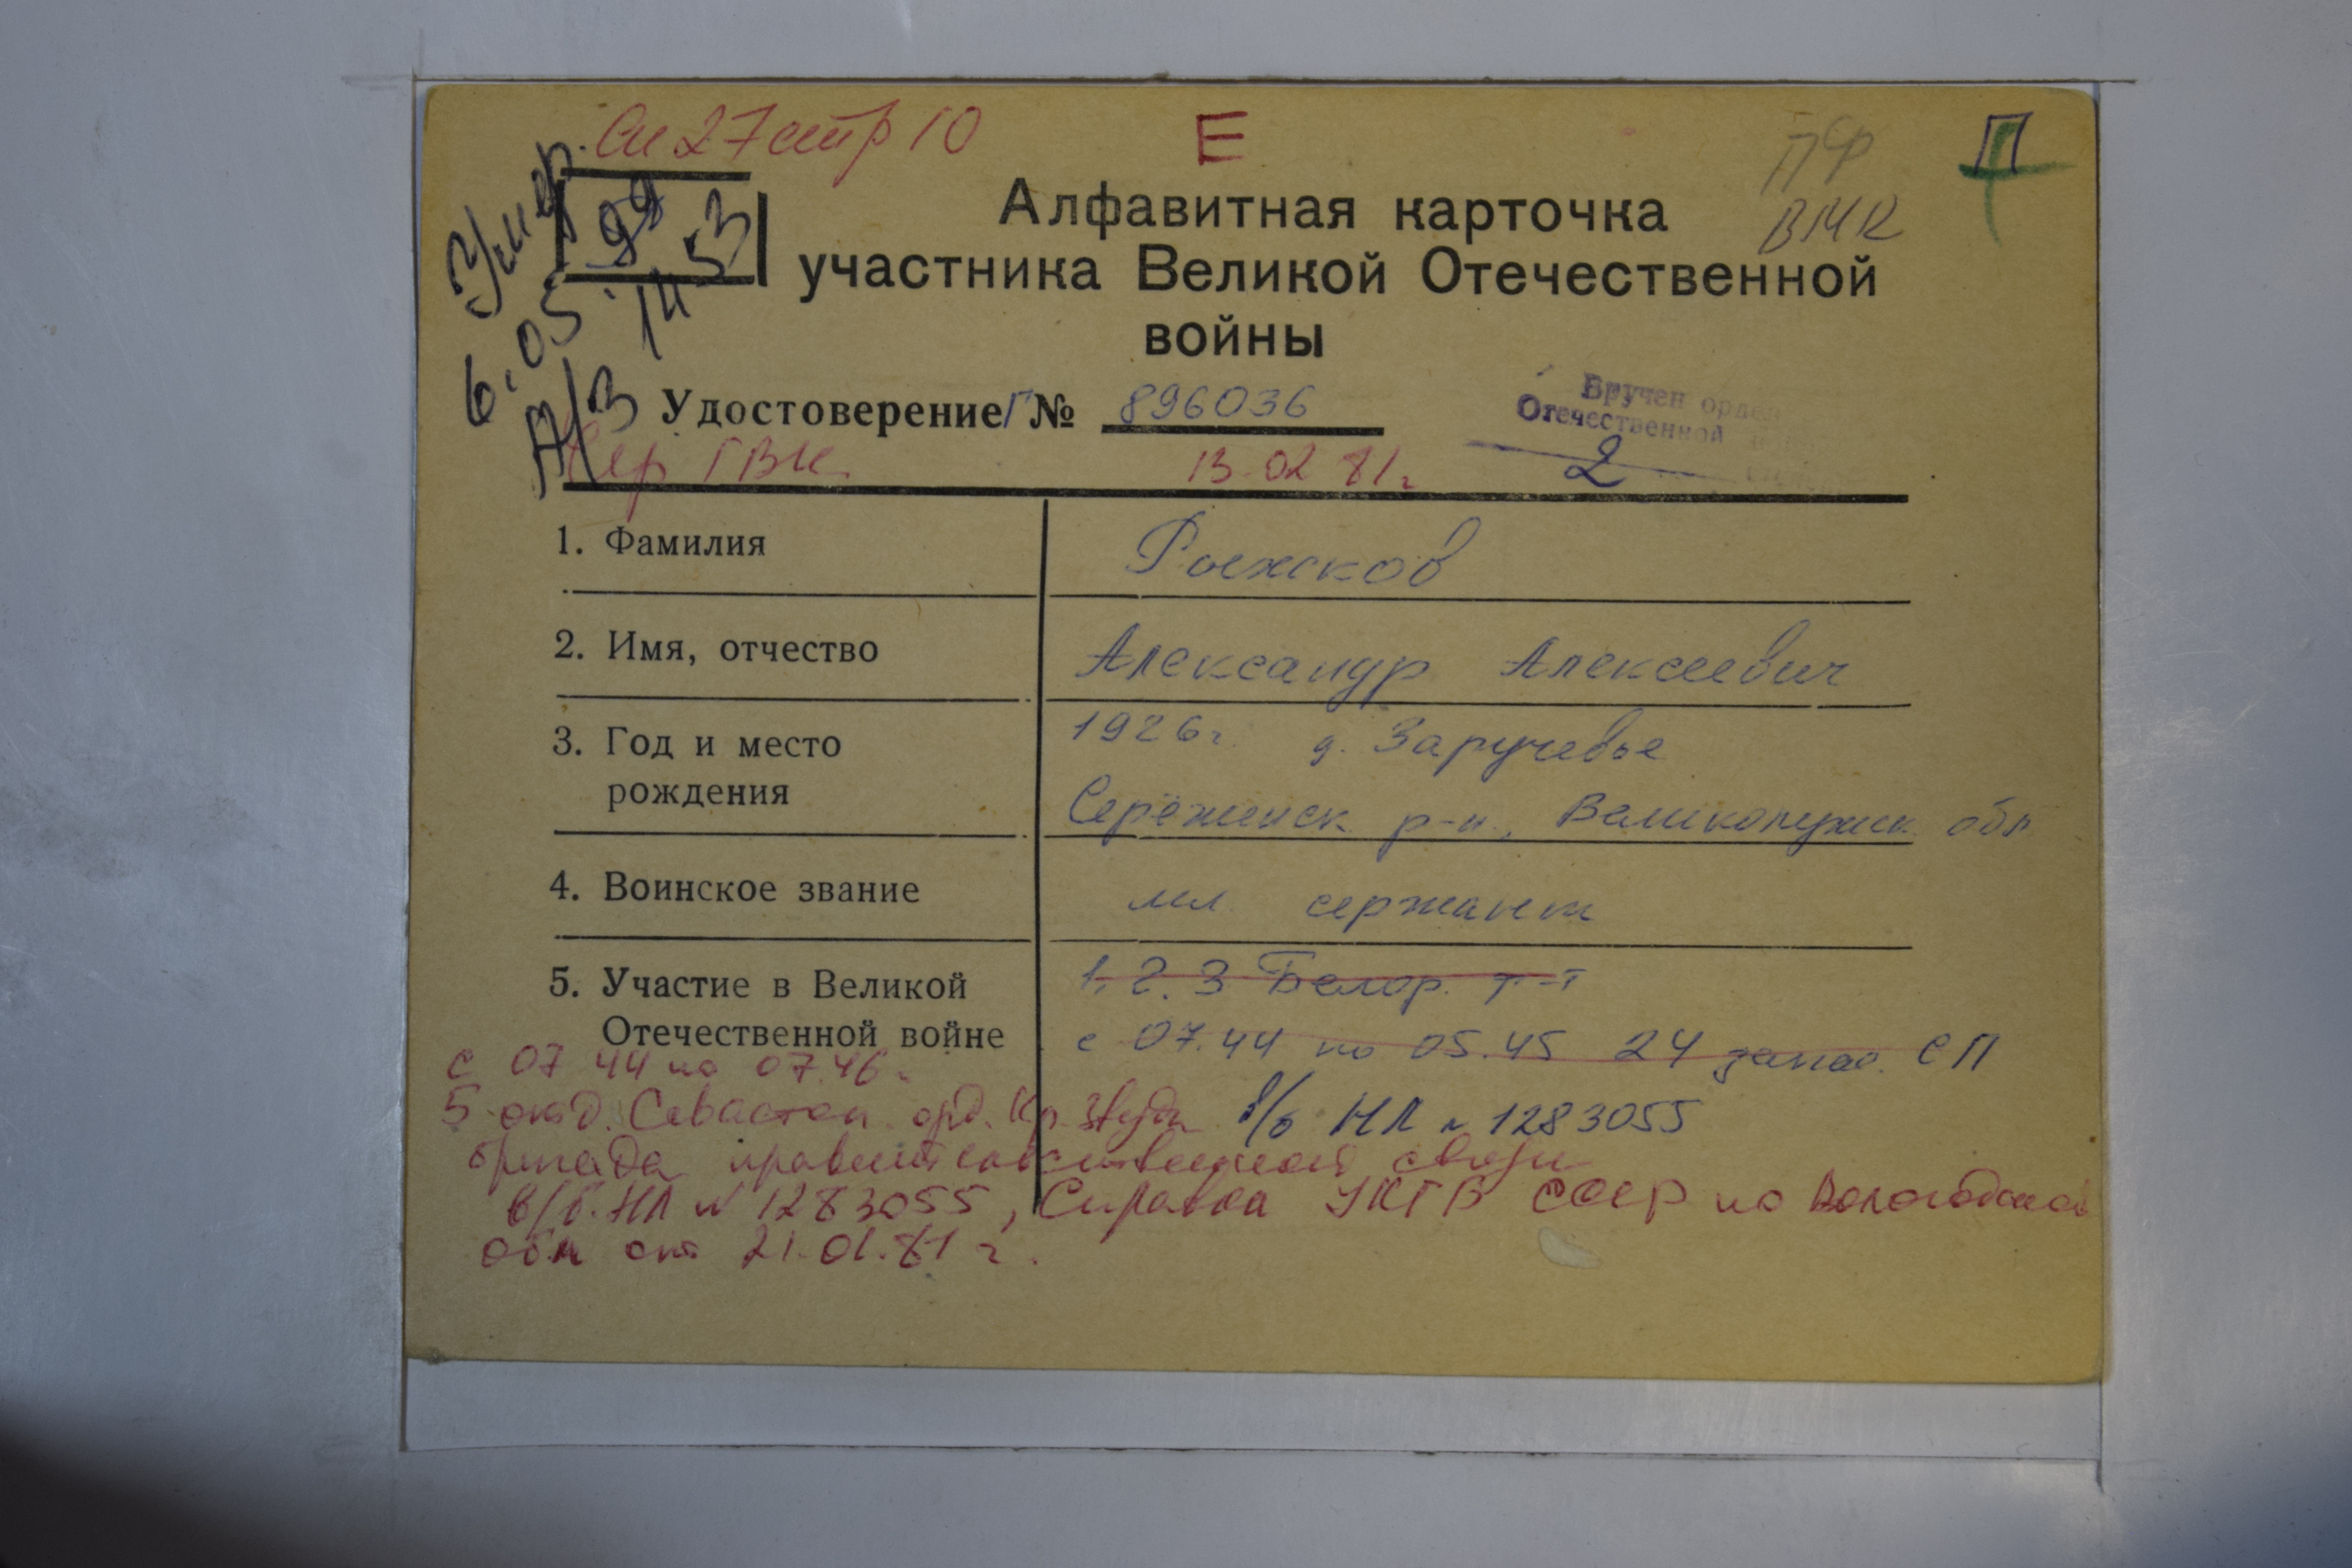 Сп 27 стр 10
Е
П
ПФ
ВМК
Умер.
6.05.
99
А/З 1453
Алфавитная карточка
участника Великой Отечественной
войны
Удостоверение Г № 896036
Вручен орден
Отечественной
2
Чер ГВК 13.02.81г.
1. Фамилия Рыжков
2. Имя, отчество Александр Алексеевич
3. Год и место 1926г. д. Заручевье
рождения Серёжинск. р-н., Великолукск. обл
4. Воинское звание мл. сержант
5. Участие в Великой 1. 2. 3 Белор. ф-т
Отечественной войне с 07.44 по 05.45 24 запас. СП
с 07 44 по 07.46 г.
5 отд. Севастоп. орд. Кр. Звезды в/б НЛ № 1283055
бригада правительственной связи
в/б. НЛ № 1283055, Справка УКГБ СССР по Вологодской
обл от 21.01.81 г.